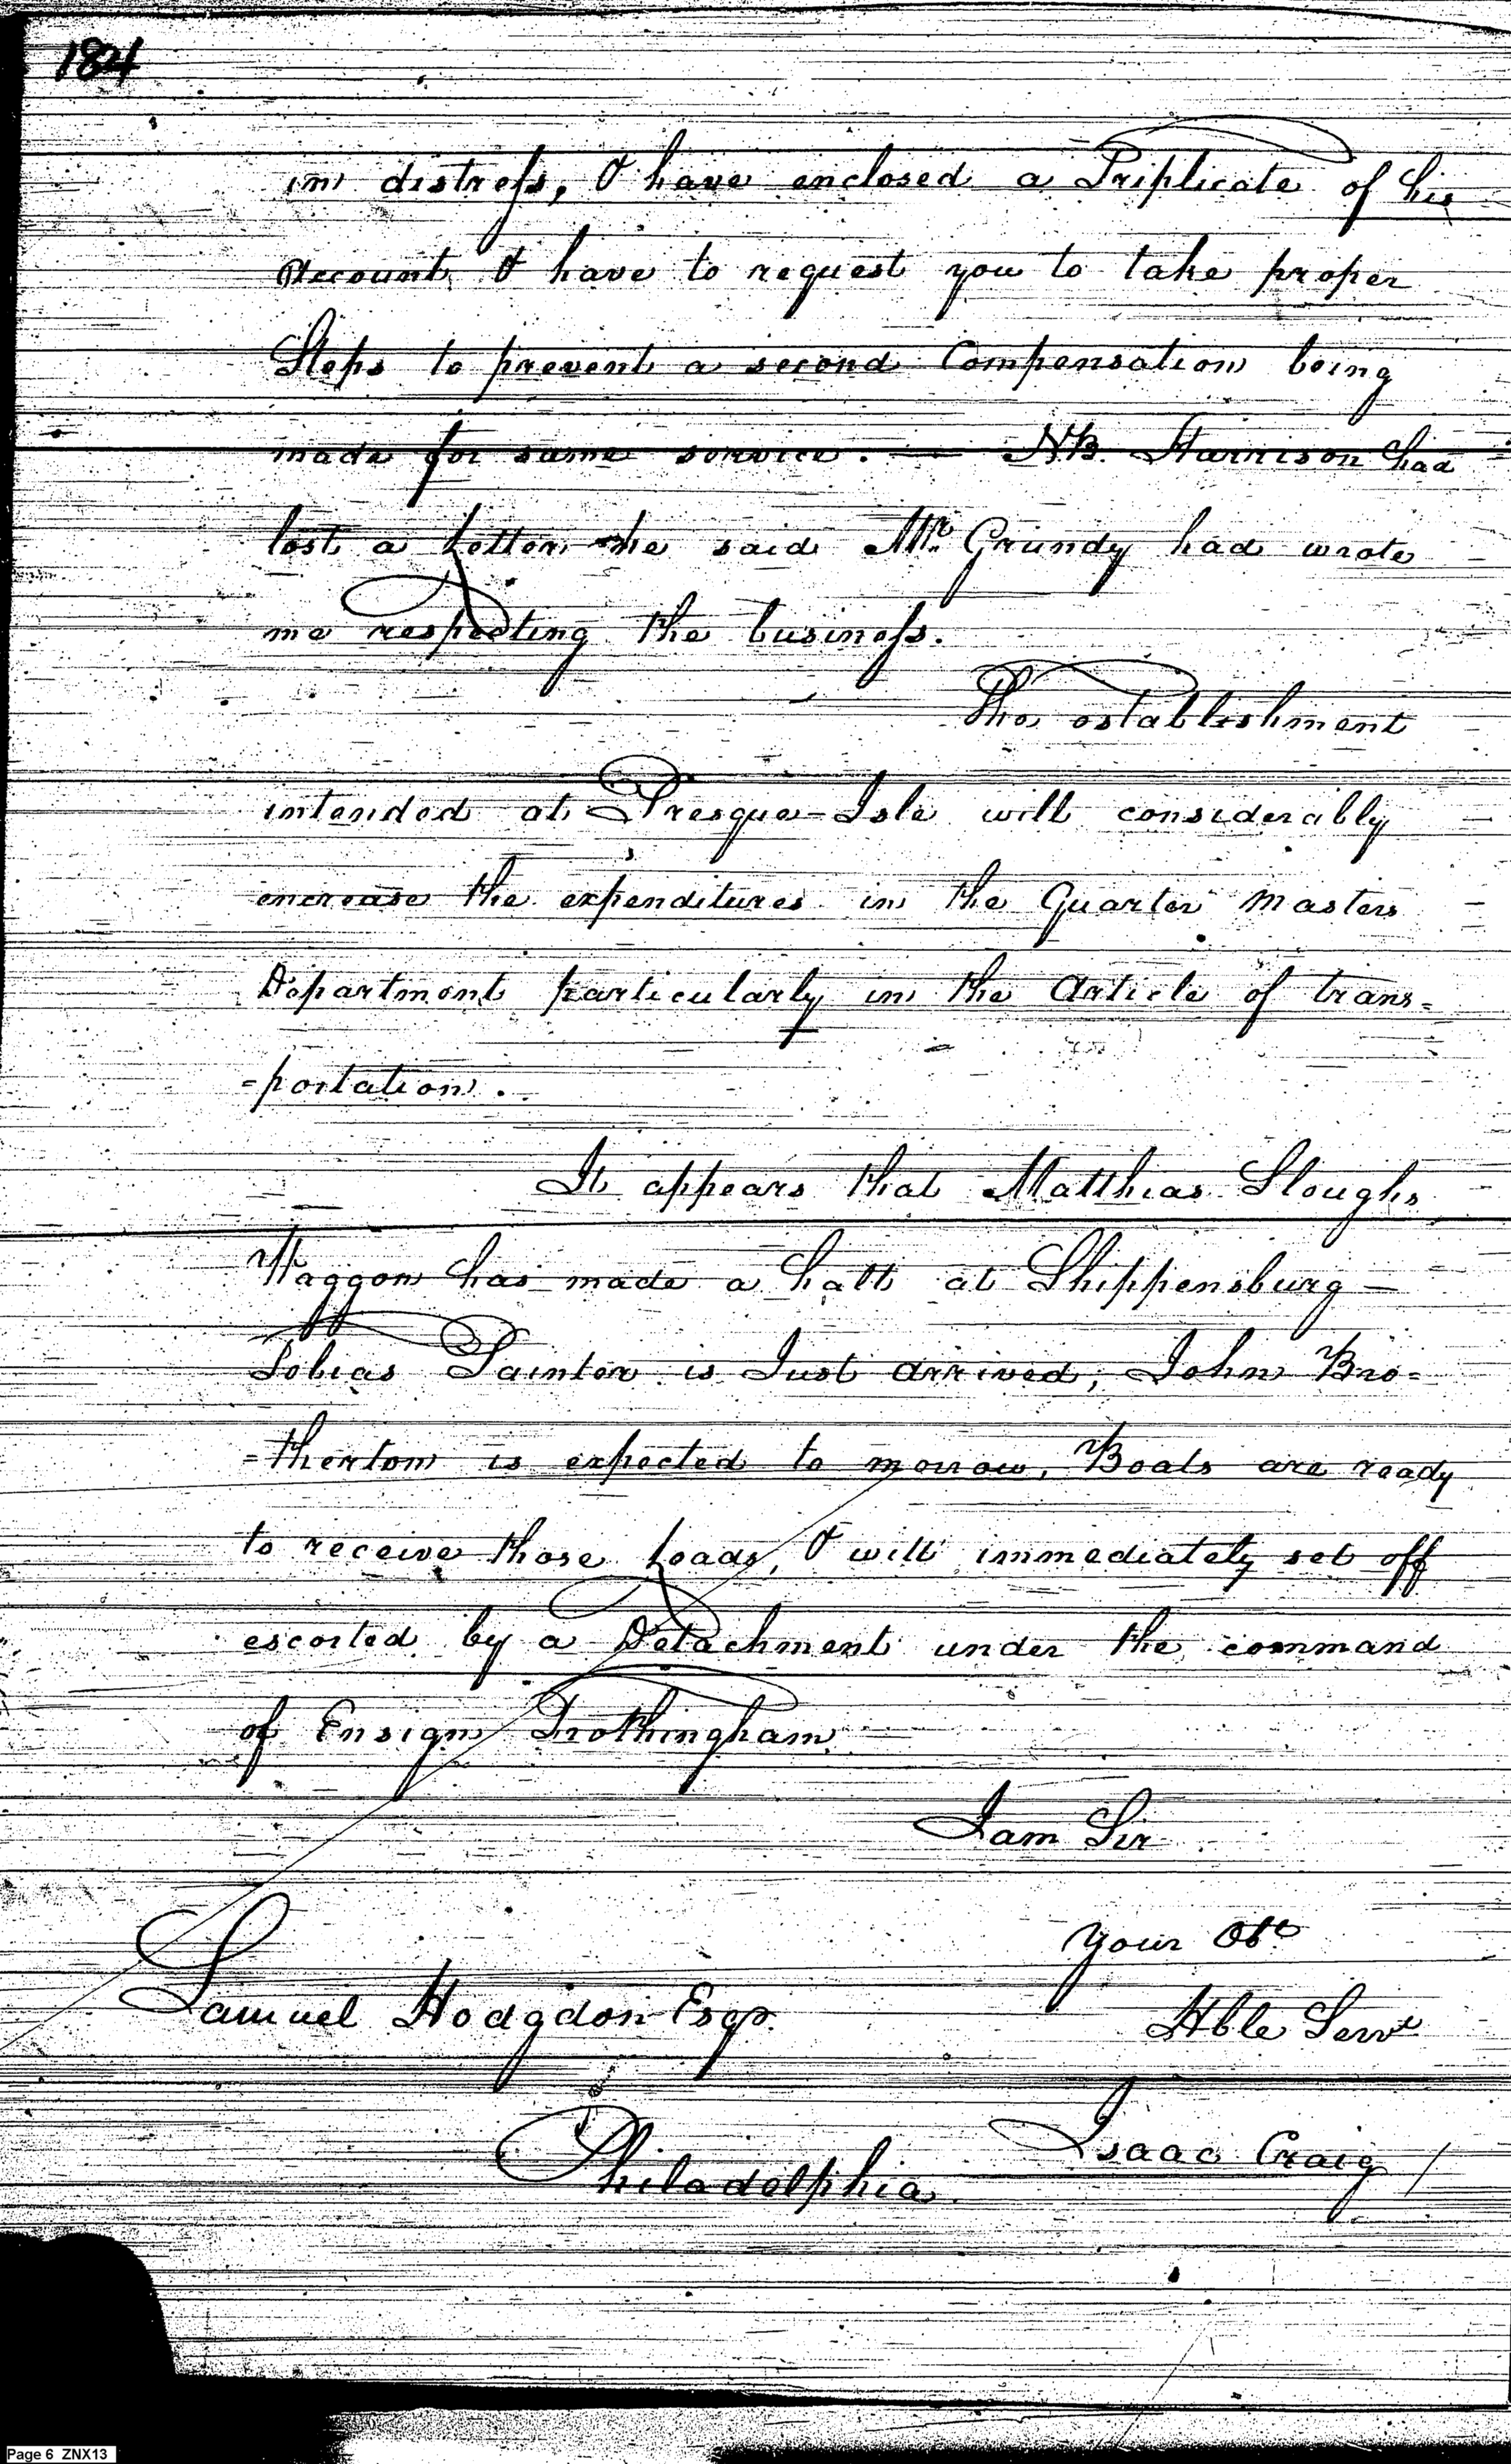 184
in distress, I have enclosed a Triplicate of his
Account, I have to request you to take proper
Steps to prevent a second Compensation being
made for same service. — NB. Harrison had
lost a Letter he said Mr. Grundy had wrote
me respecting the business.
The establishment
intended at Presque-Isle will considerably
encrease the expenditures in the Quarter Masters
Department particularly in the Article of trans=
=portation.
It appears that Matthias Sloughs
Waggon has made a halt at Shippensburg —
Tobias Painter is Just arrived, John Bro=
=therton is expected to morrow, Boats are ready
to receive those Loads, I will immediately set off
escorted by a Detachment under the command
of Ensign Frothingham
I am Sir
Your Obt
Samuel Hodgdon Esqr.
Hble Servt
Isaac Craig
Philadelphia
Page 6 ZNX13